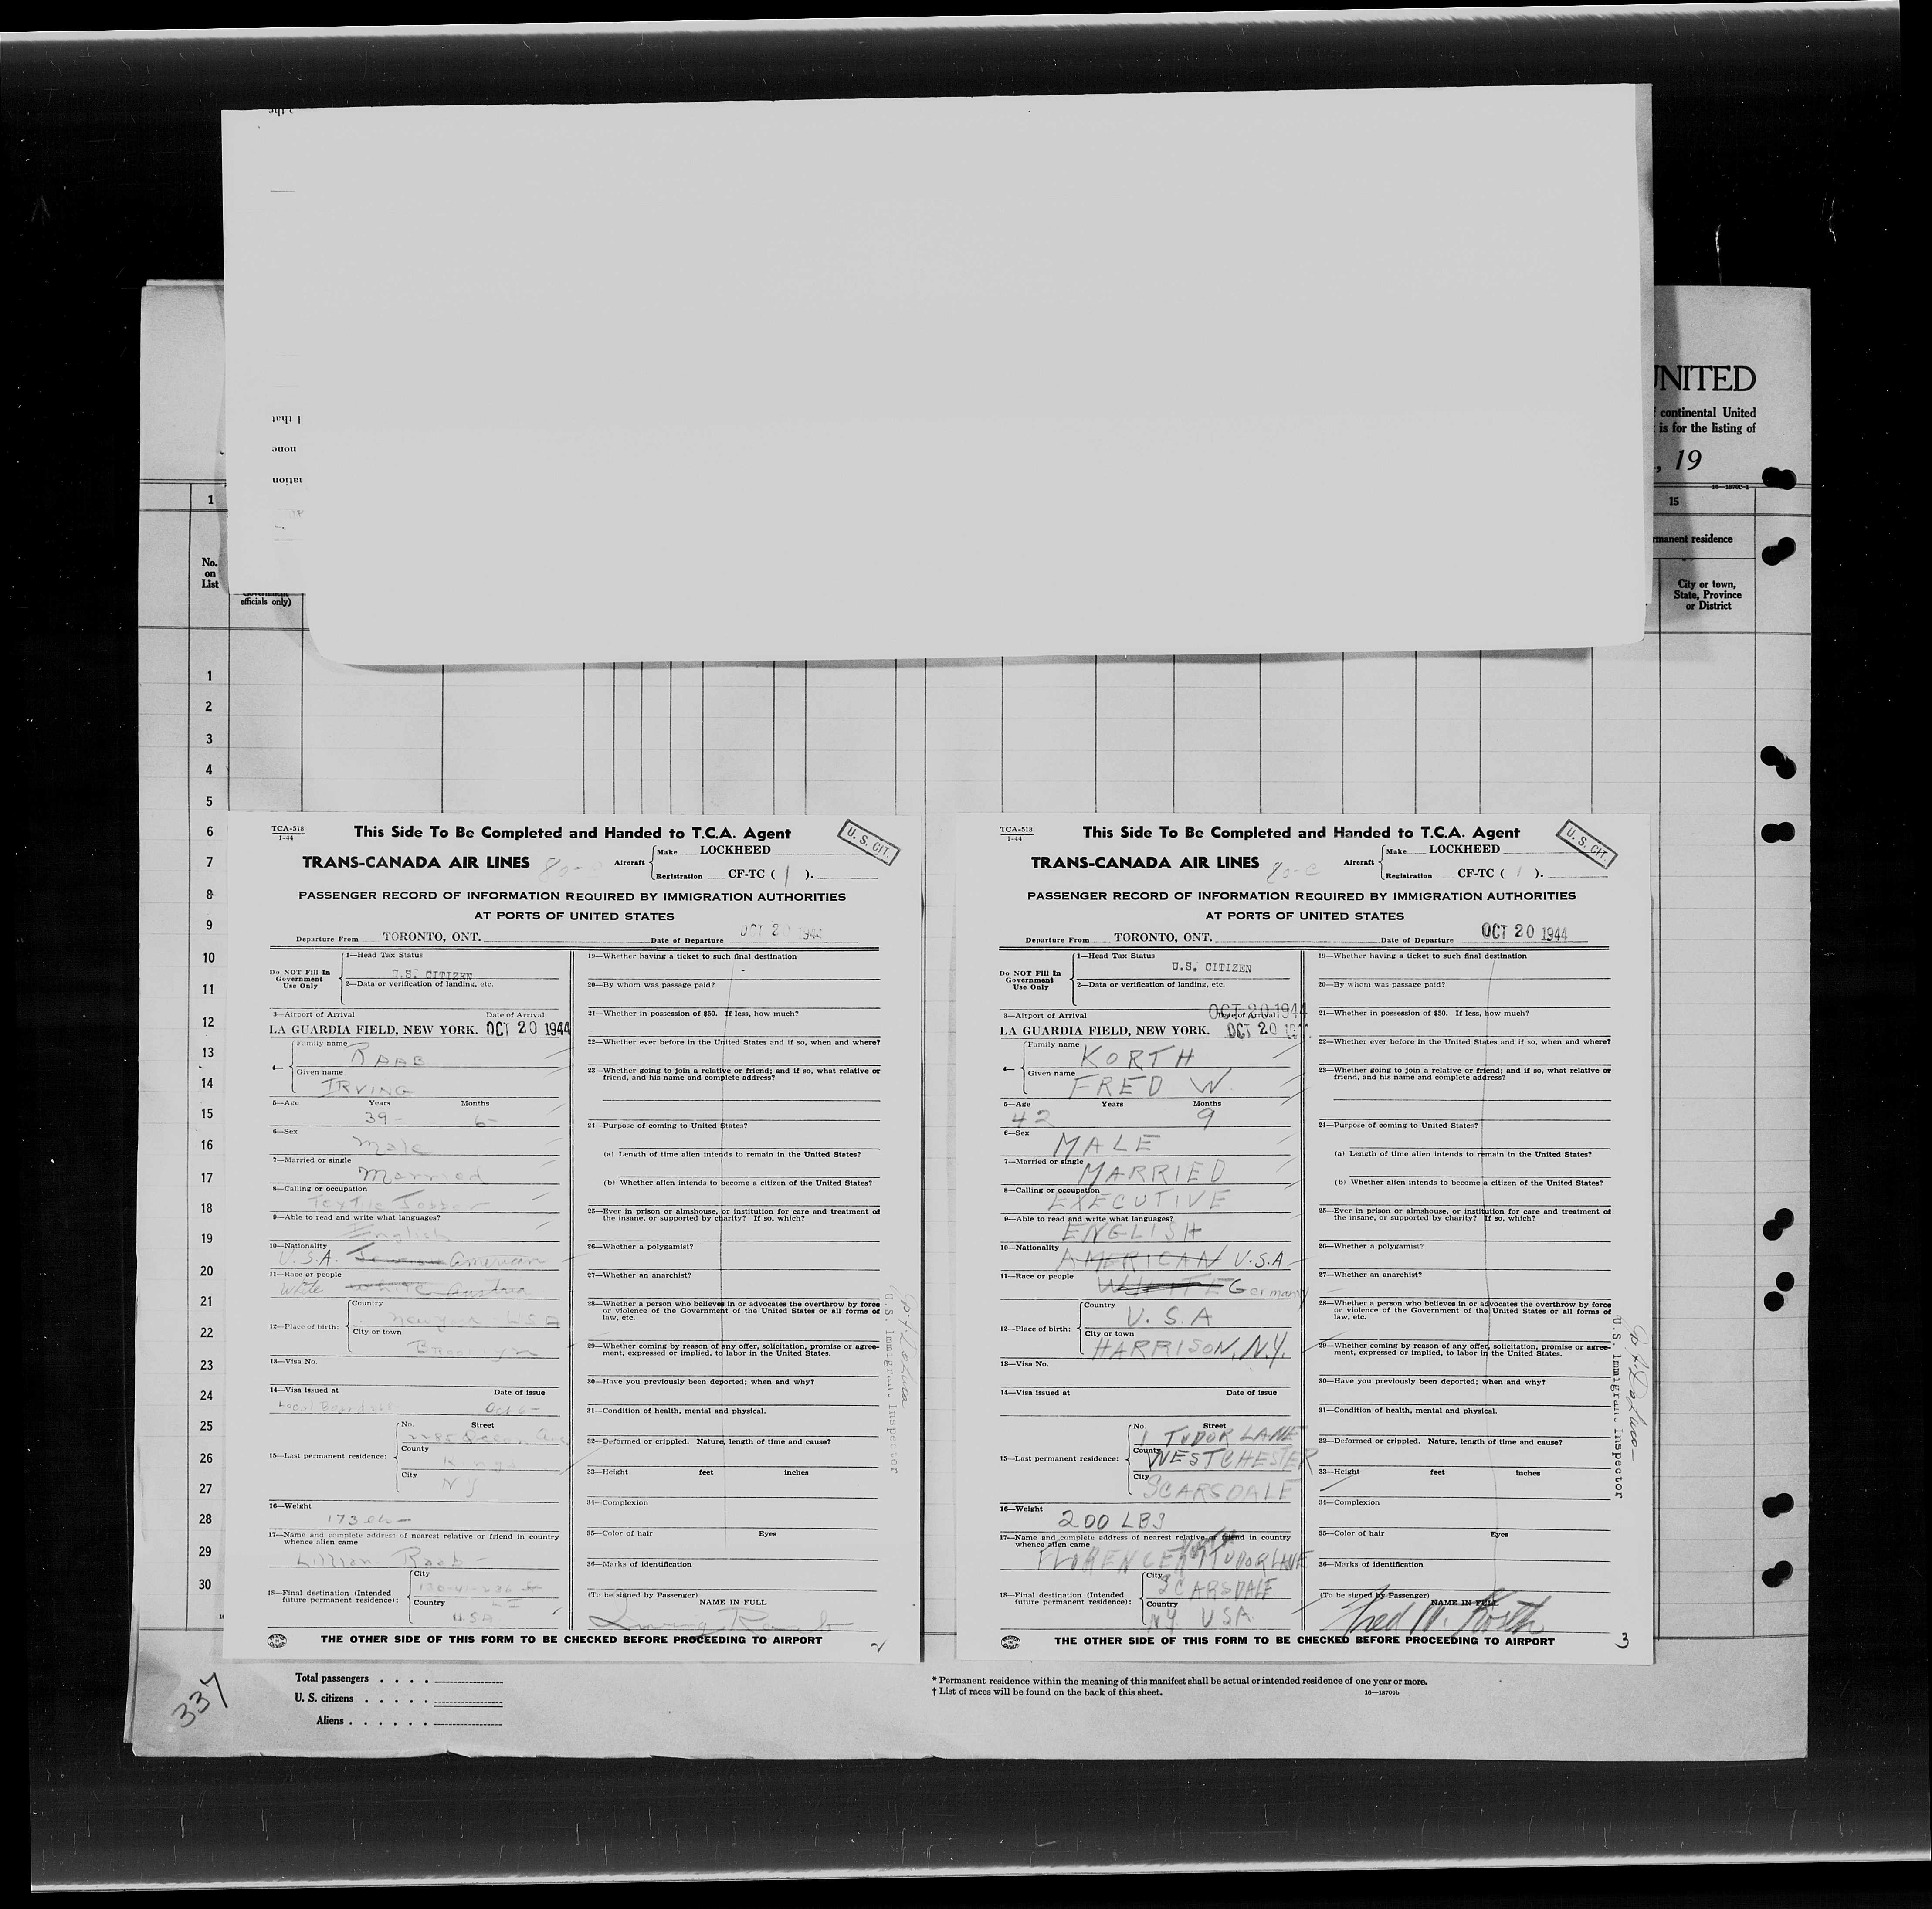 UNITED
continental United
is for the listing of
, 19
16—18700-1
1
15
rmanent residence
No.
on
List
officials only)
City or town,
State, Province
or District
1
2
3
4
5
6
7
8
9
10
11
12
13
14
15
16
17
18
19
20
21
22
23
24
25
26
27
28
29
30
TCA-518
1-44
This Side To Be Completed and Handed to T.C.A. Agent
U. S. CIT.
TRANS-CANADA AIR LINES
Aircraft
Make LOCKHEED
Registration CF-TC ( 1 ).
PASSENGER RECORD OF INFORMATION REQUIRED BY IMMIGRATION AUTHORITIES
AT PORTS OF UNITED STATES
Departure From TORONTO, ONT. Date of Departure OCT 20 1944
Do NOT Fill In
Government
Use Only
1—Head Tax Status
U.S. CITIZEN
2—Data or verification of landing, etc.
3—Airport of Arrival Date of Arrival
LA GUARDIA FIELD, NEW YORK. OCT 20 1944
4—
Family name RAAB
Given name IRVING
5—Age Years Months
39 - 6 -
6—Sex
Male
7—Married or single
Married
8—Calling or occupation
9—Able to read and write what languages?
English
10—Nationality
U.S.A. American
11—Race or people
White white Austria
12—Place of birth:
Country
New York USA
City or town
Brooklyn
13—Visa No.
14—Visa issued at Date of issue
Local Board Oct 6 -
15—Last permanent residence:
No. Street
2285 Ocean Ave
County
Kings
City
NY
16—Weight
173 lbs -
17—Name and complete address of nearest relative or friend in country
whence alien came
Lillian Raab -
18—Final destination (Intended
future permanent residence):
City
Country
USA
19—Whether having a ticket to such final destination
20—By whom was passage paid?
21—Whether in possession of $50. If less, how much?
22—Whether ever before in the United States and if so, when and where?
23—Whether going to join a relative or friend; and if so, what relative or
friend, and his name and complete address?
24—Purpose of coming to United States?
(a) Length of time alien intends to remain in the United States?
(b) Whether alien intends to become a citizen of the United States?
25—Ever in prison or almshouse, or institution for care and treatment of
the insane, or supported by charity? If so, which?
26—Whether a polygamist?
27—Whether an anarchist?
28—Whether a person who believes in or advocates the overthrow by force
or violence of the Government of the United States or all forms of
law, etc.
29—Whether coming by reason of any offer, solicitation, promise or agree-
ment, expressed or implied, to labor in the United States.
30—Have you previously been deported; when and why?
31—Condition of health, mental and physical.
32—Deformed or crippled. Nature, length of time and cause?
33—Height feet inches
34—Complexion
35—Color of hair Eyes
36—Marks of identification
(To be signed by Passenger)
NAME IN FULL
Irving Raab
U.S. Immigrant Inspector
THE OTHER SIDE OF THIS FORM TO BE CHECKED BEFORE PROCEEDING TO AIRPORT
2
TCA-518
1-44
This Side To Be Completed and Handed to T.C.A. Agent
U. S. CIT.
TRANS-CANADA AIR LINES 80-C
Aircraft
Make LOCKHEED
Registration CF-TC ( 1 ).
PASSENGER RECORD OF INFORMATION REQUIRED BY IMMIGRATION AUTHORITIES
AT PORTS OF UNITED STATES
Departure From TORONTO, ONT. Date of Departure OCT 20 1944
Do NOT Fill In
Government
Use Only
1—Head Tax Status
U.S. CITIZEN
2—Data or verification of landing, etc.
OCT 20 1944
3—Airport of Arrival Date of Arrival
LA GUARDIA FIELD, NEW YORK. OCT 20
4—
Family name KORTH
Given name FRED W.
5—Age Years Months
42 9
6—Sex
MALE
7—Married or single
MARRIED
8—Calling or occupation
EXECUTIVE
9—Able to read and write what languages?
ENGLISH
10—Nationality
AMERICAN U.S.A
11—Race or people
WHITE Germany
12—Place of birth:
Country
U.S.A
City or town
HARRISON, N.Y.
13—Visa No.
14—Visa issued at Date of issue
15—Last permanent residence:
No. Street
1 TUDOR LANE
County
WESTCHESTER
City
SCARSDALE
16—Weight
200 LBS
17—Name and complete address of nearest relative or friend in country
whence alien came
FLORENCE 1 TUDOR LANE
18—Final destination (Intended
future permanent residence):
City
SCARSDALE
Country
NY USA
19—Whether having a ticket to such final destination
20—By whom was passage paid?
21—Whether in possession of $50. If less, how much?
22—Whether ever before in the United States and if so, when and where?
23—Whether going to join a relative or friend; and if so, what relative or
friend, and his name and complete address?
24—Purpose of coming to United States?
(a) Length of time alien intends to remain in the United States?
(b) Whether alien intends to become a citizen of the United States?
25—Ever in prison or almshouse, or institution for care and treatment of
the insane, or supported by charity? If so, which?
26—Whether a polygamist?
27—Whether an anarchist?
28—Whether a person who believes in or advocates the overthrow by force
or violence of the Government of the United States or all forms of
law, etc.
29—Whether coming by reason of any offer, solicitation, promise or agree-
ment, expressed or implied, to labor in the United States.
30—Have you previously been deported; when and why?
31—Condition of health, mental and physical.
32—Deformed or crippled. Nature, length of time and cause?
33—Height feet inches
34—Complexion
35—Color of hair Eyes
36—Marks of identification
(To be signed by Passenger)
NAME IN FULL
Fred W. Korth
U.S. Immigrant Inspector
THE OTHER SIDE OF THIS FORM TO BE CHECKED BEFORE PROCEEDING TO AIRPORT
3
337
Total passengers . . . .
U. S. citizens . . . . .
Aliens . . . . . .
* Permanent residence within the meaning of this manifest shall be actual or intended residence of one year or more.
† List of races will be found on the back of this sheet.
16—18700b